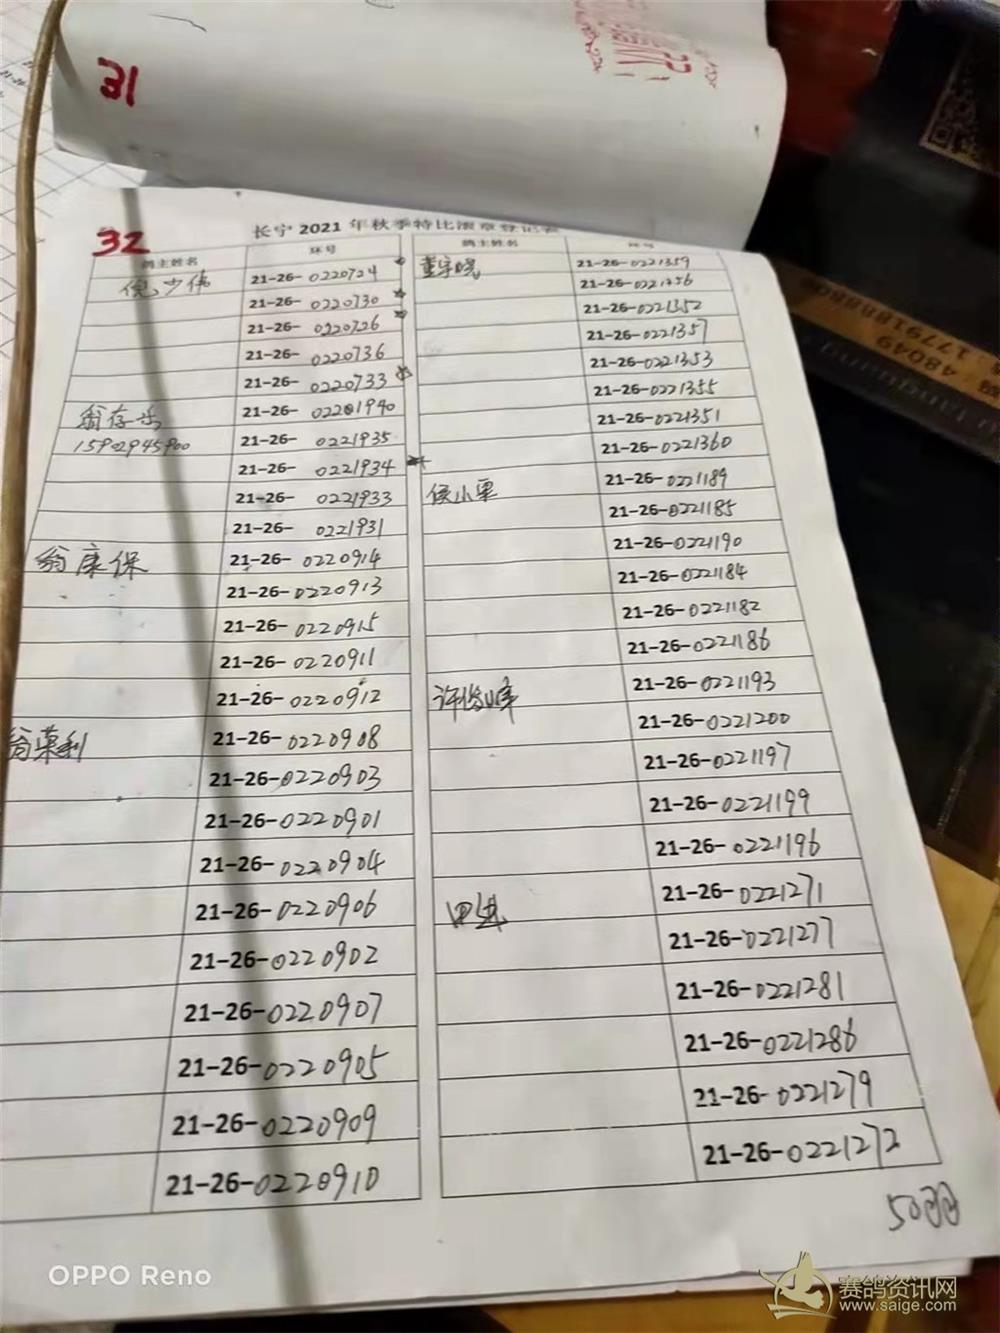 31
32
长宁 2021 年秋季特比
鸽主姓名 环号
倪少伟 21-26-0220724
21-26-0220730
21-26-0220726
21-26-0220736
21-26-0220733
翁存 21-26-02201940
15902945900 21-26-0221935
21-26-0221934
21-26-0221933
21-26-0221931
翁康保 21-26-0220914
21-26-0220913
21-26-0220915
21-26-0220911
21-26-0220912
翁荣利 21-26-0220908
21-26-0220903
21-26-0220901
21-26-0220904
21-26-0220906
21-26-0220902
21-26-0220907
21-26-0220905
21-26-0220909
21-26-0220910
鸽主姓名 环号
董宇晓 21-26-0221359
21-26-0221356
21-26-0221352
21-26-0221357
21-26-0221353
21-26-0221355
21-26-0221351
21-26-0221360
侯小 21-26-0221189
21-26-0221185
21-26-0221190
21-26-0221184
21-26-0221182
21-26-0221186
许俊峰 21-26-0221193
21-26-0221200
21-26-0221197
21-26-0221199
21-26-0221196
21-26-0221271
21-26-0221277
21-26-0221281
21-26-0221286
21-26-0221279
21-26-0221272
48049
OPPO Reno
赛鸽资讯网
www.saige.com